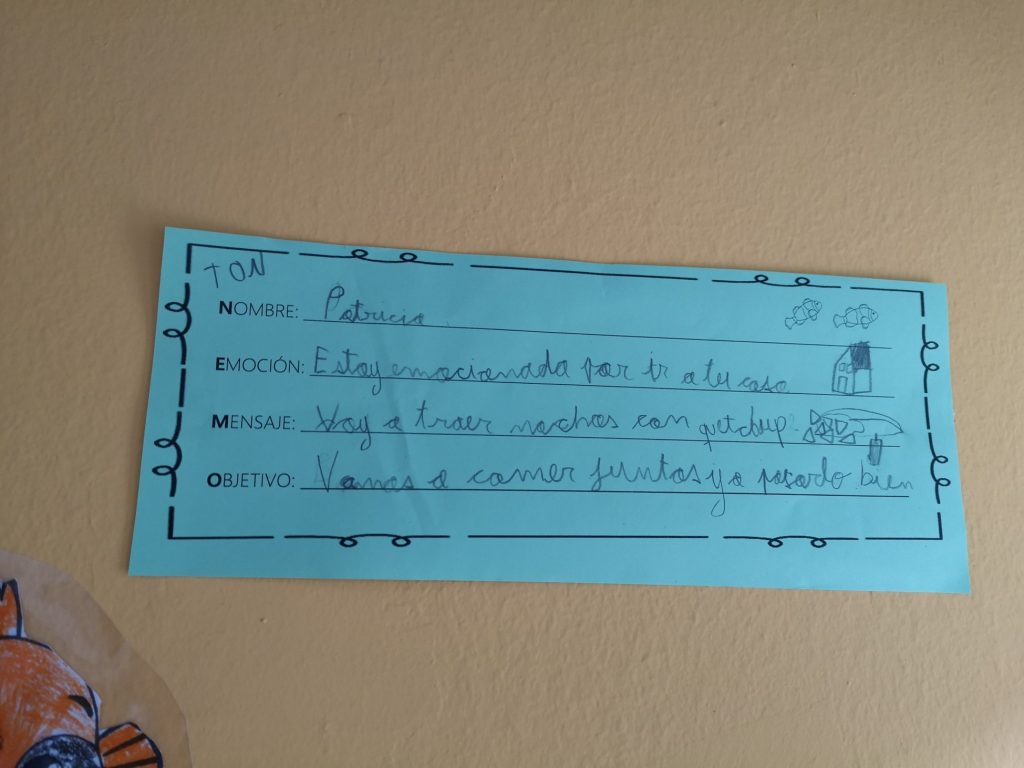 TON
NOMBRE: Patricia
EMOCIÓN: Estoy emocionada por ir a tu casa
MENSAJE: Voy a traer nachos con getchup.
OBJETIVO: Vamos a comer juntos y a pasarlo bien